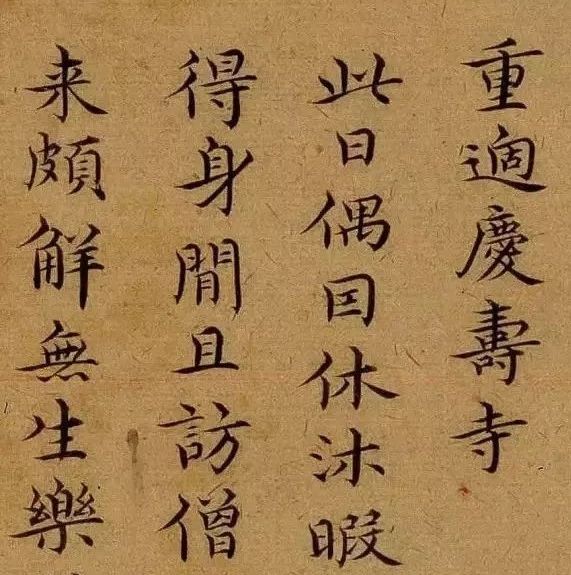 重適慶壽寺
此日偶因休沐暇
得身閒且訪僧
来頗解無生樂